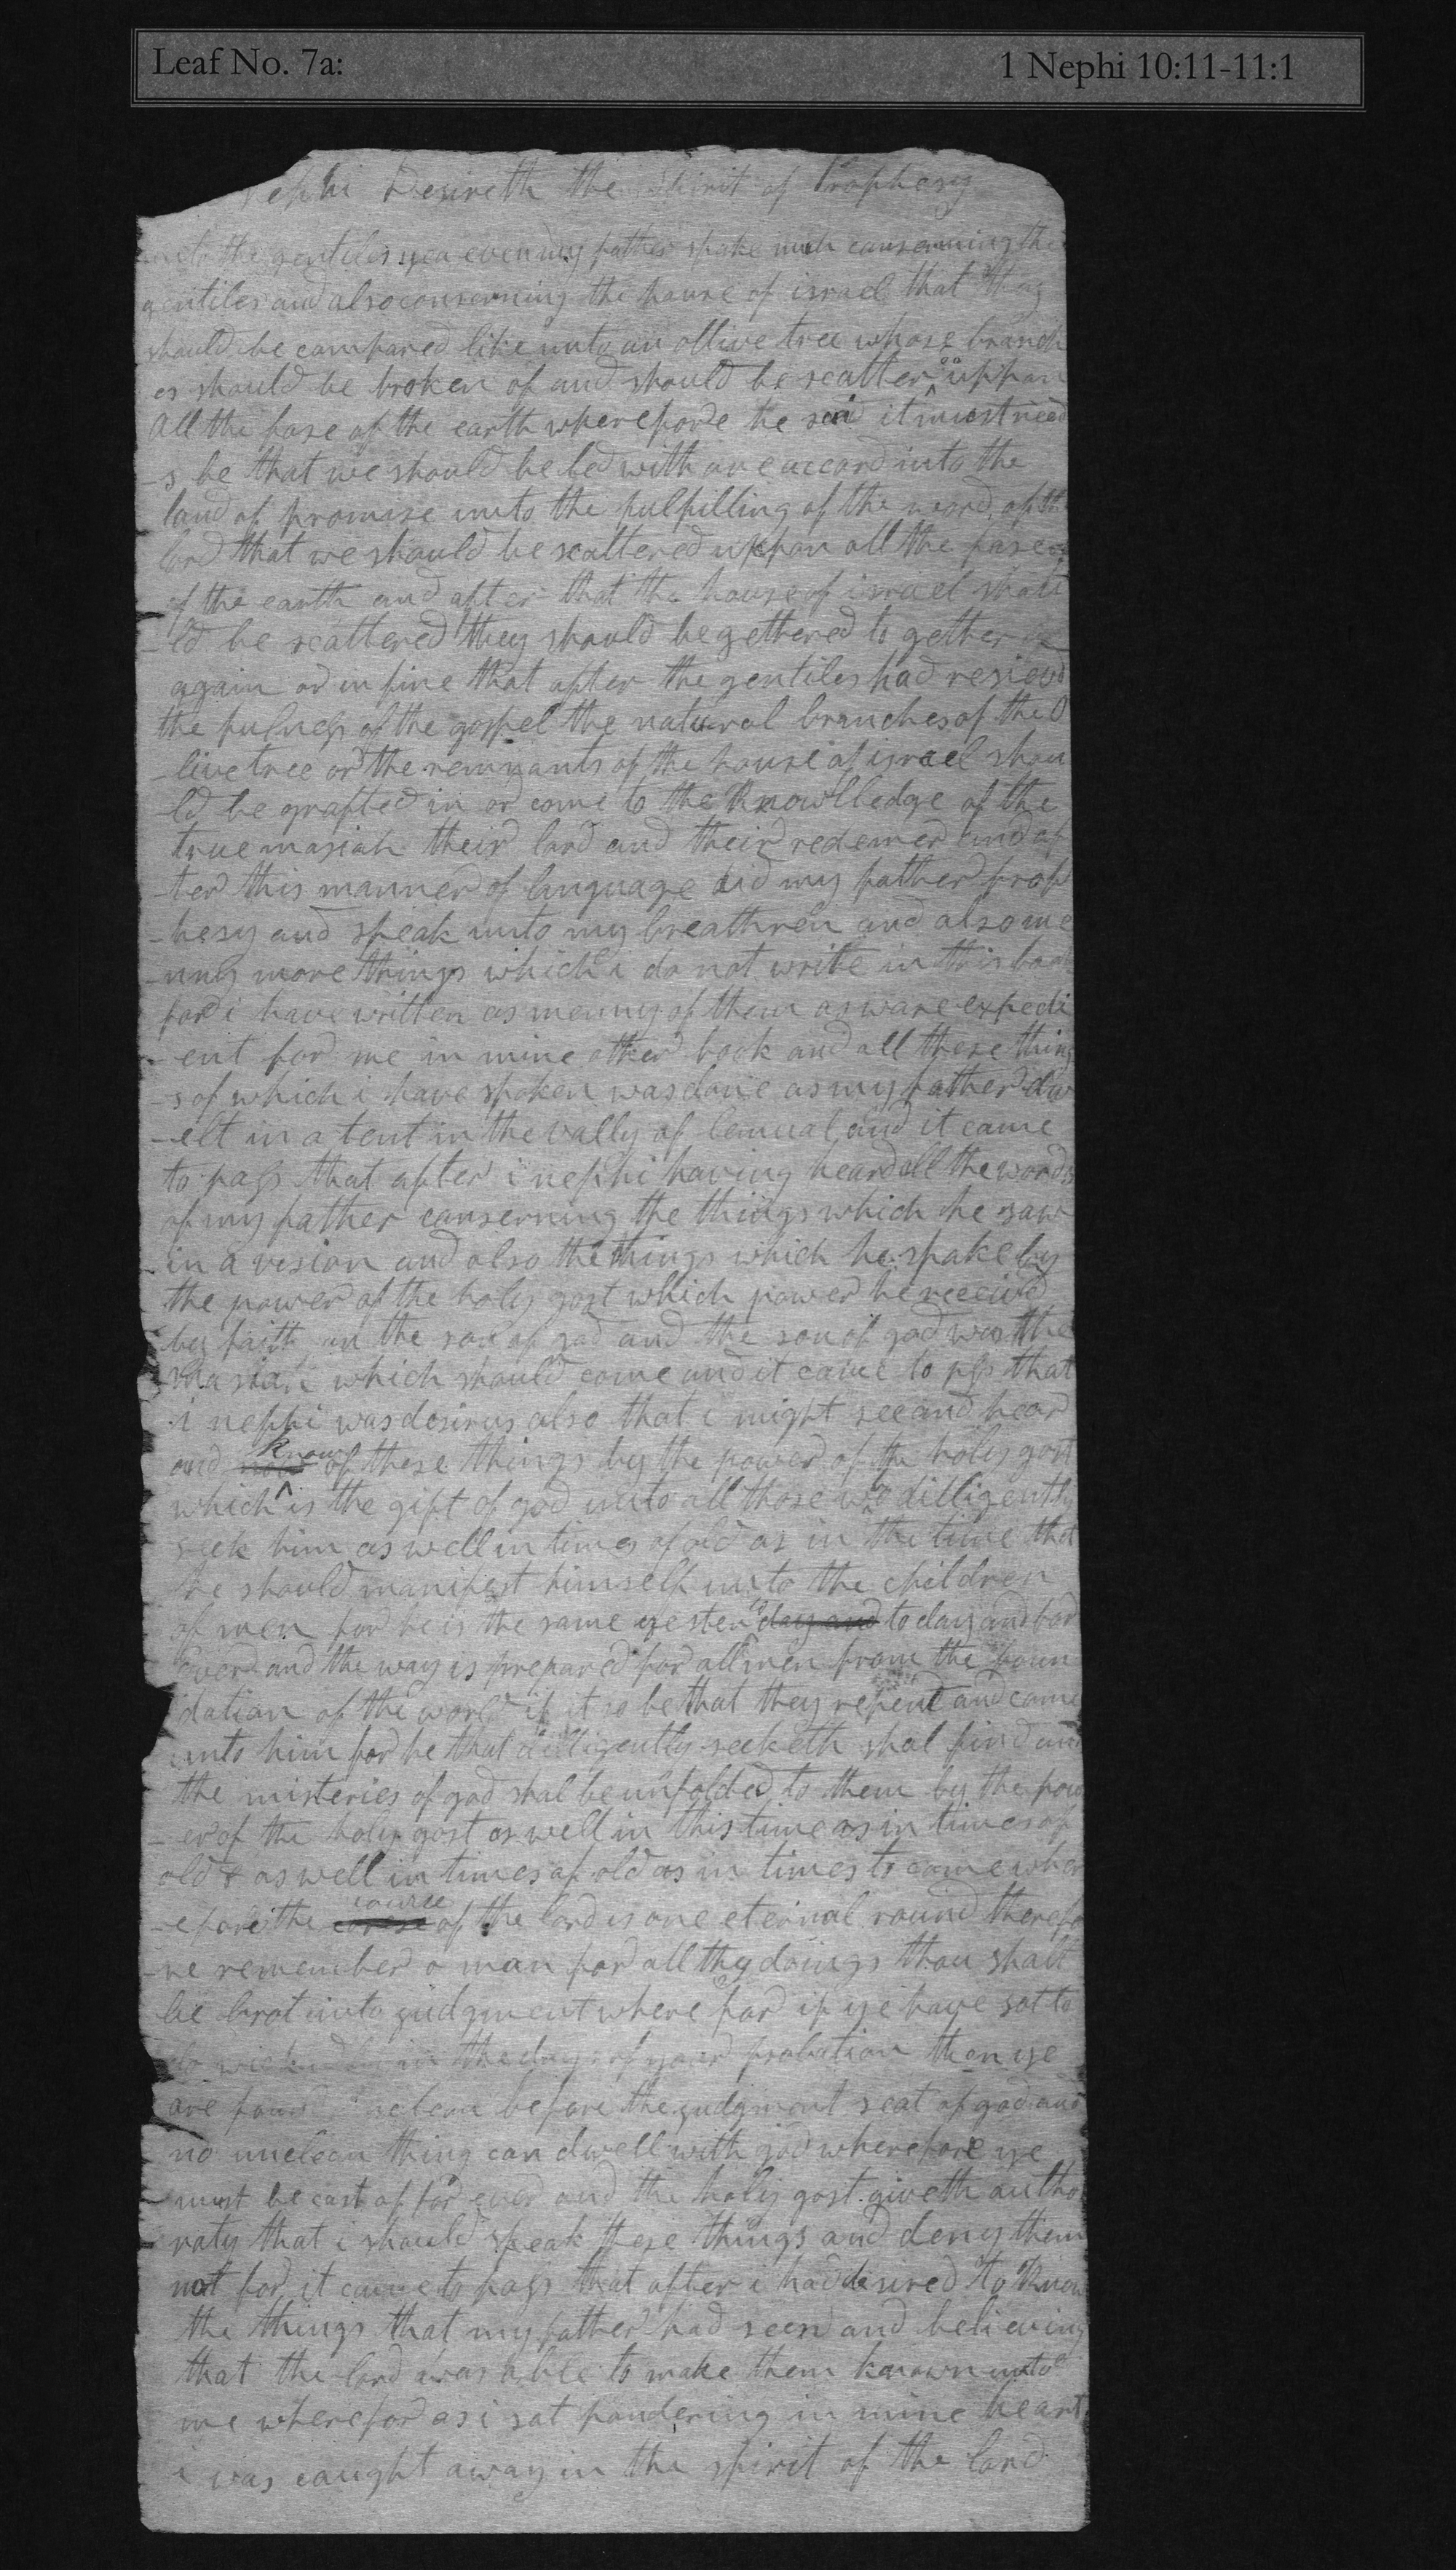 Leaf No. 7a: 1 Nephi 10:11-11:1
Nephi Desireth the Spirit of Prophesy
unto the gentiles yea even my father spake much consearning the
gentiles and also conserning the house of israel that they
should be compared like unto an ollive tree whose branch
es should be broken of and should be scatter^ed uppon
All the fase of the earth wherefore he said it must need
-s be that we should be led with one accord into the
land of promise unto the fulfilling of the word of the
lord that we should be scattered uppon all the fase
of the earth and after that the house of israel shou
-ld be scattered they should be gethered to gether
again or in fine that after the gentiles had resievd
the fulness of the gospel the natural branches of the O
-live tree or the remnants of the house of israel shou
-ld be grafted in or come to the Knowlledge of the
true masiah their lord and their redemer and af
-ter this manner of language did my father prop
-hesy and speak unto my breathren and also me
-nny more things which i do not write in this book
for i have written as menny of them as ware expedi
-ent for me in mine other book and all these thing
-s of which i have spoken was done as my father dw
-elt in a tent in the vally of lemual and it came
to pass that after i nephi having heard all the words
of my father conserning the things which he saw
in a vision and also the things which he spake by
the power of the holy gost which power he receivd
by faith on the son of god and the son of god was the
masiah which should come and it came to pass that
i nephi was desirus also that i might see and hear
and now know of these things by the power of the holy gost
which^is the gift of god unto all those who dilligently
seek him as well in times of old as in the time that
he should manifest himself unto the children
of men for he is the same yester day and to day and for
ever and the way is prepared for all men from the foun
dation of the world if it so be that they repent and come
unto him for he that dilligently seeketh shal find and
the misteries of god shal be unfolded to them by the pow
-er of the holy gost as well in this time as in times of
old & as well in times of old as in times to come wher
-efore the corse cource of the lord is one eternal round therefo
-re remember o man for all thy doings thou shalt
be brot into judgment where for if ye have sot to
do in the days of your probation then ye
are found unclean before the judgment seat of god and
no unclean thing can dwell with god wherefore ye
must be cast of for ever and the holy gost giveth autho
raty that i should speak these things and deny them
not for it came to pass that after i had desired to Know
the things that my father had seen and believing
that the lord was able to make them known unto
me wherefor as i sat pondering in mine heart
i was caught away in the spirit of the lord